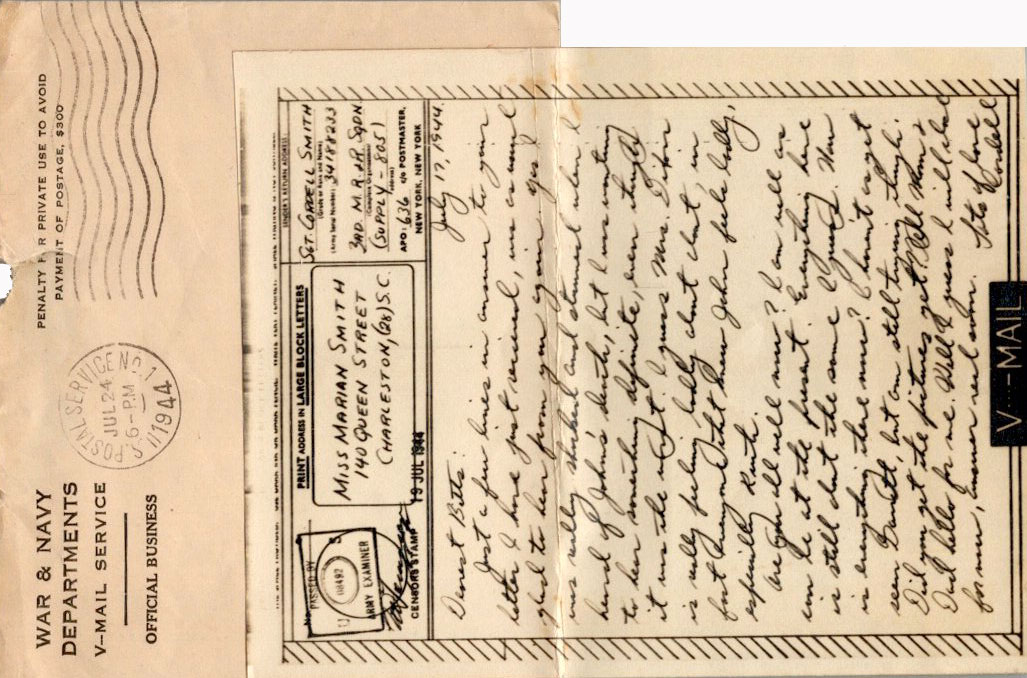 WAR & NAVY
DEPARTMENTS
V–MAIL SERVICE
OFFICIAL BUSINESS
PENALTY F R PRIVATE USE TO AVOID
PAYMENT OF POSTAGE, $300
U.S. POSTAL SERVICE NO. 1
JUL 24
6-PM
1944
No.
PASSED BY
U S
08492
ARMY EXAMINER
CENSOR'S STAMP
PRINT ADDRESS IN LARGE BLOCK LETTERS
MISS MARIAN SMITH
140 QUEEN STREET
CHARLESTON, (28) S.C.
19 JUL 1944
SENDER'S RETURN ADDRESS
SGT. CORDELL SMITH
(Grade or Rate and Name)
(Army Serial Number) 34188233
3RD. M. R.&R. SQDN
(Complete Organization)
(SUPPLY – 805)
APO: 636 c/o POSTMASTER,
NEW YORK, NEW YORK
July 17, 1944.
Dearest Bitts:
Just a few lines in answer to your
letter I have just received, was as usual
glad to hear from you again. Yes I
was really shocked and stunned when I
heard of John's death, but I was waiting
to hear something definite, even tho
it was the worst. I guess Mrs. Dixon
is really feeling badly about that, in
fact everyone that knew John feels badly,
especially
Are you all well now? I am well as
can be at the present. Everything here
is still about the same I guess. How
is everything there now? I haven't as yet
seen but am still trying though.
Did you get the pictures yet? Tell Mom &
Dad hello for me. Well I guess I will close
for now, answer real soon. Lots of love
Cordell
V···–MAIL